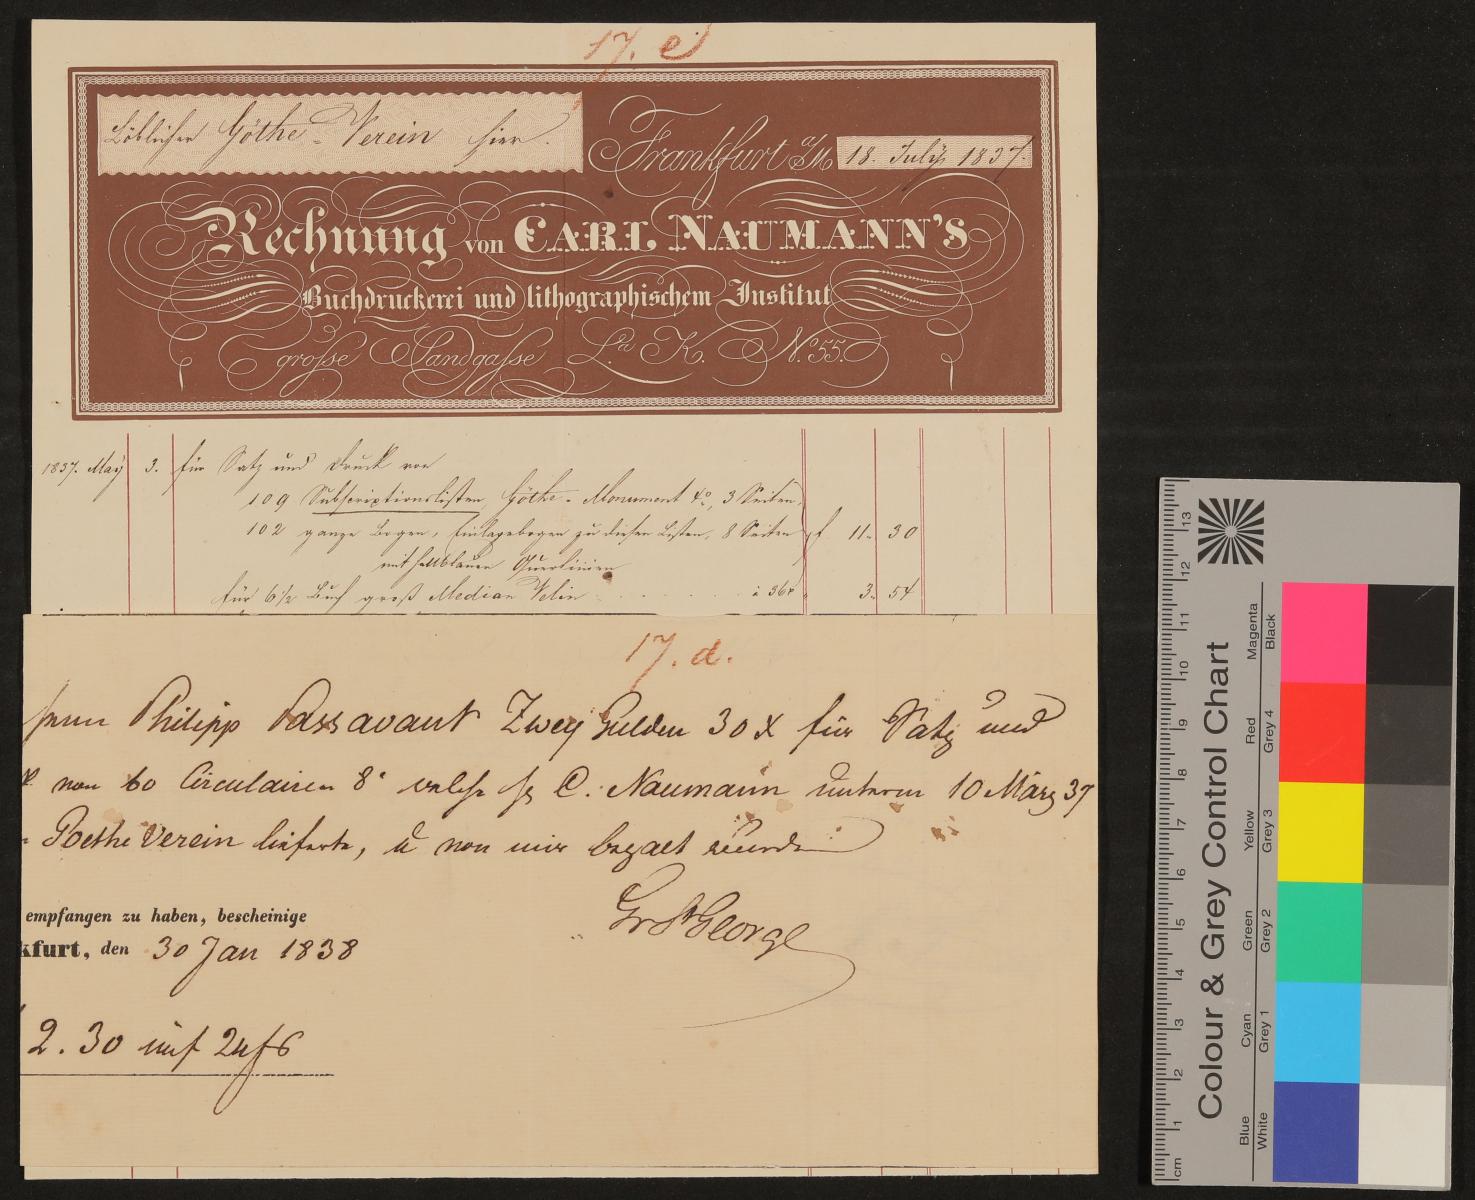 17. e
Löblicher Göthe-Verein hier.
Frankfurt a/M 18. July 1837.
Rechnung von CARL NAUMANN'S
Buchdruckerei und lithographischem Institut
grosse Sandgasse L.a K. No. 55.
1837. May 3. für Satz und Druck von
109 Subscriptionslisten, Göthe-Monument 4o, 3 Seiten,
102 ganze Bogen, Einlagebogen zu diesen Listen, 8 Seiten f 11. 30
mit hellblauen Querlinien
für 6 1/2 Buch groß Median Velin à 36x 3. 54
17. d.
Herrn Philipp Passavant Zwey Gulden 30 x für Satz und
von 60 Circulairen 8o welche H C. Naumann unterm 10 März 37
Goethe Verein lieferte, u von mir bezalt wurden
Gr St George
empfangen zu haben, bescheinige
kfurt, den 30 Jan 1838
2. 30 im 24 f
Colour & Grey Control Chart
Blue Cyan Green Yellow Red Magenta
White Grey 1 Grey 2 Grey 3 Grey 4 Black
cm 1 2 3 4 5 6 7 8 9 10 11 12 13